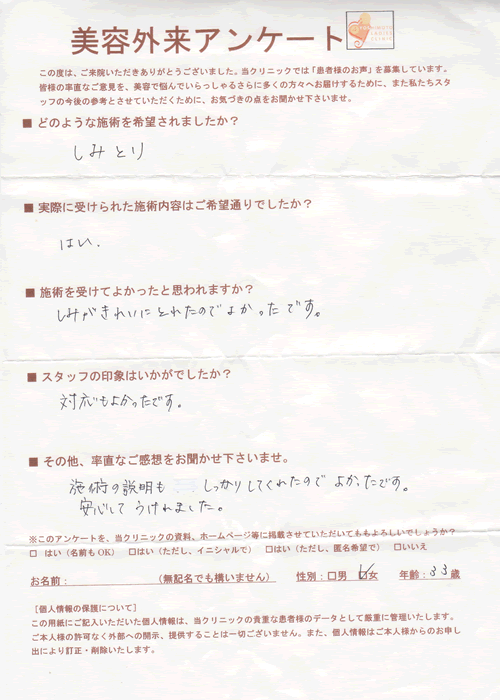 美容外来アンケート
この度は、ご来院いただきありがとうございました。当クリニックでは「患者様のお声」を募集しています。
皆様の率直なご意見を、美容で悩んでいらっしゃるさらに多くの方々へお届けするために、また私たちスタ
ッフの今後の参考とさせていただくために、お気づきの点をお聞かせ下さいませ。
■ どのような施術を希望されましたか？
しみとり
■ 実際に受けられた施術内容はご希望通りでしたか？
はい.
■ 施術を受けてよかったと思われますか？
しみがきれいにとれたのでよかったです。
■ スタッフの印象はいかがでしたか？
対応もよかったです。
■ その他、率直なご感想をお聞かせ下さいませ。
施術の説明も しっかりしてくれたので よかったです。
安心して うけれました。
※このアンケートを、当クリニックの資料、ホームページ等に掲載させていただいてももよろしいでしょうか？
□ はい（名前もOK） □はい（ただし、イニシャルで） □はい（ただし、匿名希望で） □いいえ
お名前： （無記名でも構いません） 性別：□男 ☑女 年齢：33歳
［個人情報の保護について］
この用紙にご記入いただいた個人情報は、当クリニックの貴重な患者様のデータとして厳重に管理いたします。
ご本人様の許可なく外部への開示、提供することは一切ございません。また、個人情報はご本人様からのお申し
出により訂正・削除いたします。